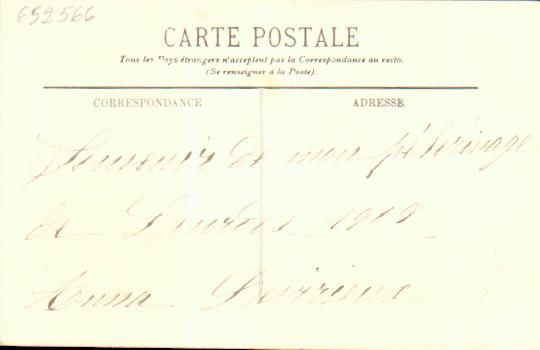 652566
CARTE POSTALE
Tous les Pays étrangers n'acceptent pas la Correspondance au recto.
(Se renseigner à la Poste).
CORRESPONDANCE
ADRESSE
Souvenir de mon pélérinage
de Lourdes 1919
Anna